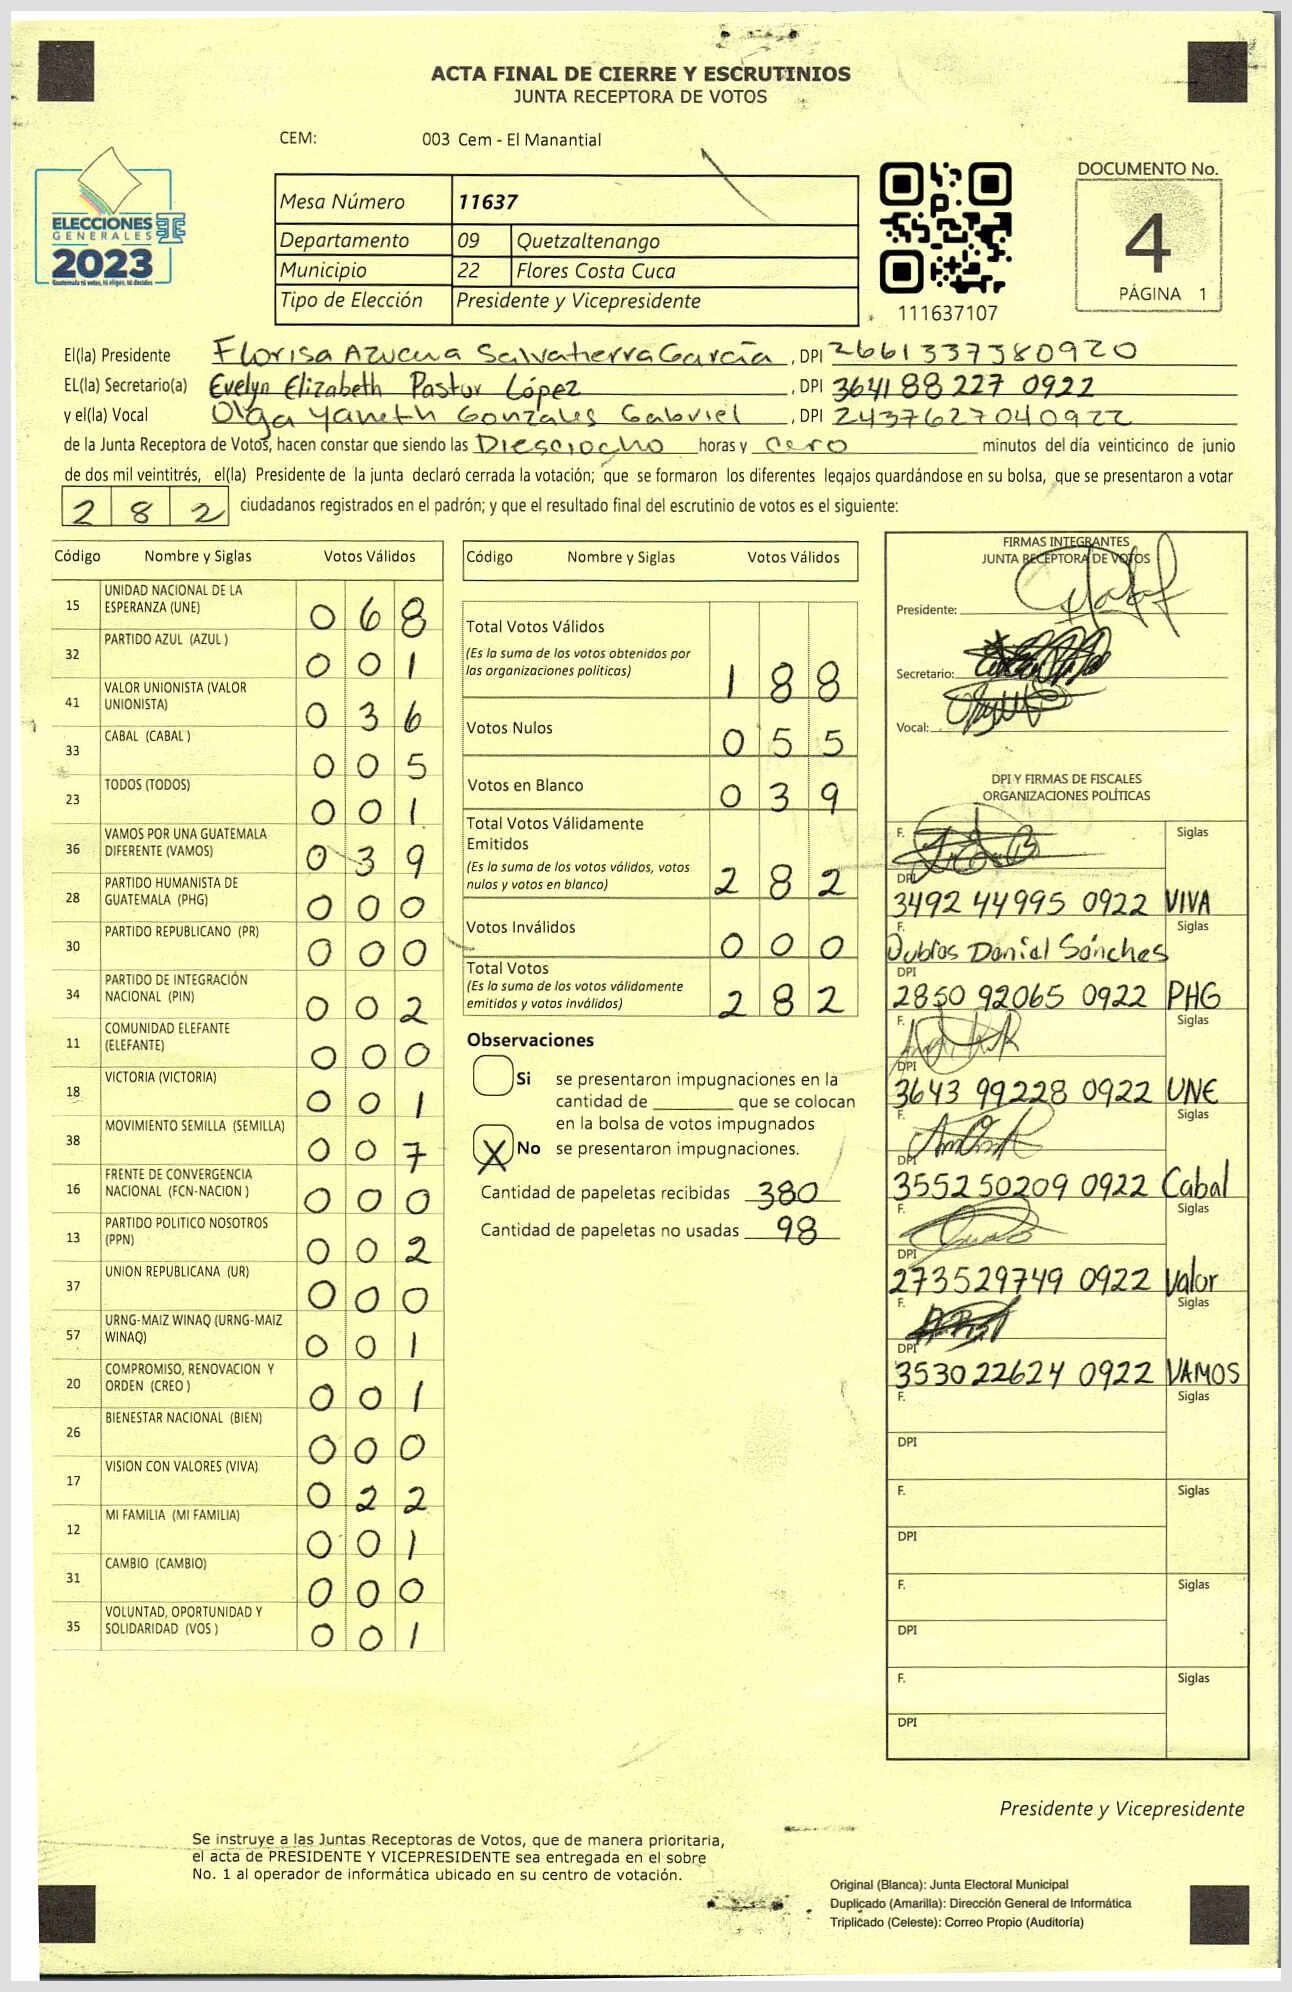 ACTA FINAL DE CIERRE Y ESCRUTINIOS
JUNTA RECEPTORA DE VOTOS
CEM: 003 Cem - El Manantial
ELECCIONES
GENERALES
2023
Guatemala tú votas, tú eliges, tú decides
Mesa Número 11637
Departamento 09 Quetzaltenango
Municipio 22 Flores Costa Cuca
Tipo de Elección Presidente y Vicepresidente
111637107
DOCUMENTO No.
4
PÁGINA 1
El(la) Presidente Florisa Azucena Salvatierra García, DPI 2661337380920
EL(la) Secretario(a) Evelyn Elizabeth Pastor López, DPI 3641 88 227 0922
y el(la) Vocal Olga Yaneth Gonzales Gabriel, DPI 2437627040922
de la Junta Receptora de Votos, hacen constar que siendo las Diesciocho horas y cero minutos del día veinticinco de junio
de dos mil veintitrés, el(la) Presidente de la junta declaró cerrada la votación; que se formaron los diferentes legajos guardándose en su bolsa, que se presentaron a votar
2 8 2 ciudadanos registrados en el padrón; y que el resultado final del escrutinio de votos es el siguiente:
Código Nombre y Siglas Votos Válidos
15 UNIDAD NACIONAL DE LA
ESPERANZA (UNE) 0 6 8
32 PARTIDO AZUL (AZUL ) 0 0 1
41 VALOR UNIONISTA (VALOR
UNIONISTA) 0 3 6
33 CABAL (CABAL ) 0 0 5
23 TODOS (TODOS) 0 0 1
36 VAMOS POR UNA GUATEMALA
DIFERENTE (VAMOS) 0 3 9
28 PARTIDO HUMANISTA DE
GUATEMALA (PHG) 0 0 0
30 PARTIDO REPUBLICANO (PR) 0 0 0
34 PARTIDO DE INTEGRACIÓN
NACIONAL (PIN) 0 0 2
11 COMUNIDAD ELEFANTE
(ELEFANTE) 0 0 0
18 VICTORIA (VICTORIA) 0 0 1
38 MOVIMIENTO SEMILLA (SEMILLA) 0 0 7
16 FRENTE DE CONVERGENCIA
NACIONAL (FCN-NACION ) 0 0 0
13 PARTIDO POLITICO NOSOTROS
(PPN) 0 0 2
37 UNION REPUBLICANA (UR) 0 0 0
57 URNG-MAIZ WINAQ (URNG-MAIZ
WINAQ) 0 0 1
20 COMPROMISO, RENOVACION Y
ORDEN (CREO ) 0 0 1
26 BIENESTAR NACIONAL (BIEN) 0 0 0
17 VISION CON VALORES (VIVA) 0 2 2
12 MI FAMILIA (MI FAMILIA) 0 0 1
31 CAMBIO (CAMBIO) 0 0 0
35 VOLUNTAD, OPORTUNIDAD Y
SOLIDARIDAD (VOS ) 0 0 1
Código Nombre y Siglas Votos Válidos
Total Votos Válidos
(Es la suma de los votos obtenidos por
las organizaciones políticas) 1 8 8
Votos Nulos 0 5 5
Votos en Blanco 0 3 9
Total Votos Válidamente
Emitidos
(Es la suma de los votos válidos, votos
nulos y votos en blanco) 2 8 2
Votos Inválidos 0 0 0
Total Votos
(Es la suma de los votos válidamente
emitidos y votos inválidos) 2 8 2
Observaciones
Si se presentaron impugnaciones en la
cantidad de ________ que se colocan
en la bolsa de votos impugnados
X No se presentaron impugnaciones.
Cantidad de papeletas recibidas 380
Cantidad de papeletas no usadas 98
FIRMAS INTEGRANTES
JUNTA RECEPTORA DE VOTOS
Presidente:
Secretario:
Vocal:
DPI Y FIRMAS DE FISCALES
ORGANIZACIONES POLÍTICAS
F. Siglas
DPI
3492 44995 0922 VIVA
F. Siglas
Daniel Sánches
DPI
2850 92065 0922 PHG
F. Siglas
DPI
3643 99228 0922 UNE
F. Siglas
DPI
3552 50209 0922 Cabal
F. Siglas
DPI
273529749 0922 Valor
F. Siglas
DPI
3530 22624 0922 VAMOS
F. Siglas
DPI
F. Siglas
DPI
F. Siglas
DPI
F. Siglas
DPI
Presidente y Vicepresidente
Se instruye a las Juntas Receptoras de Votos, que de manera prioritaria,
el acta de PRESIDENTE Y VICEPRESIDENTE sea entregada en el sobre
No. 1 al operador de informática ubicado en su centro de votación.
Original (Blanca): Junta Electoral Municipal
Duplicado (Amarilla): Dirección General de Informática
Triplicado (Celeste): Correo Propio (Auditoría)